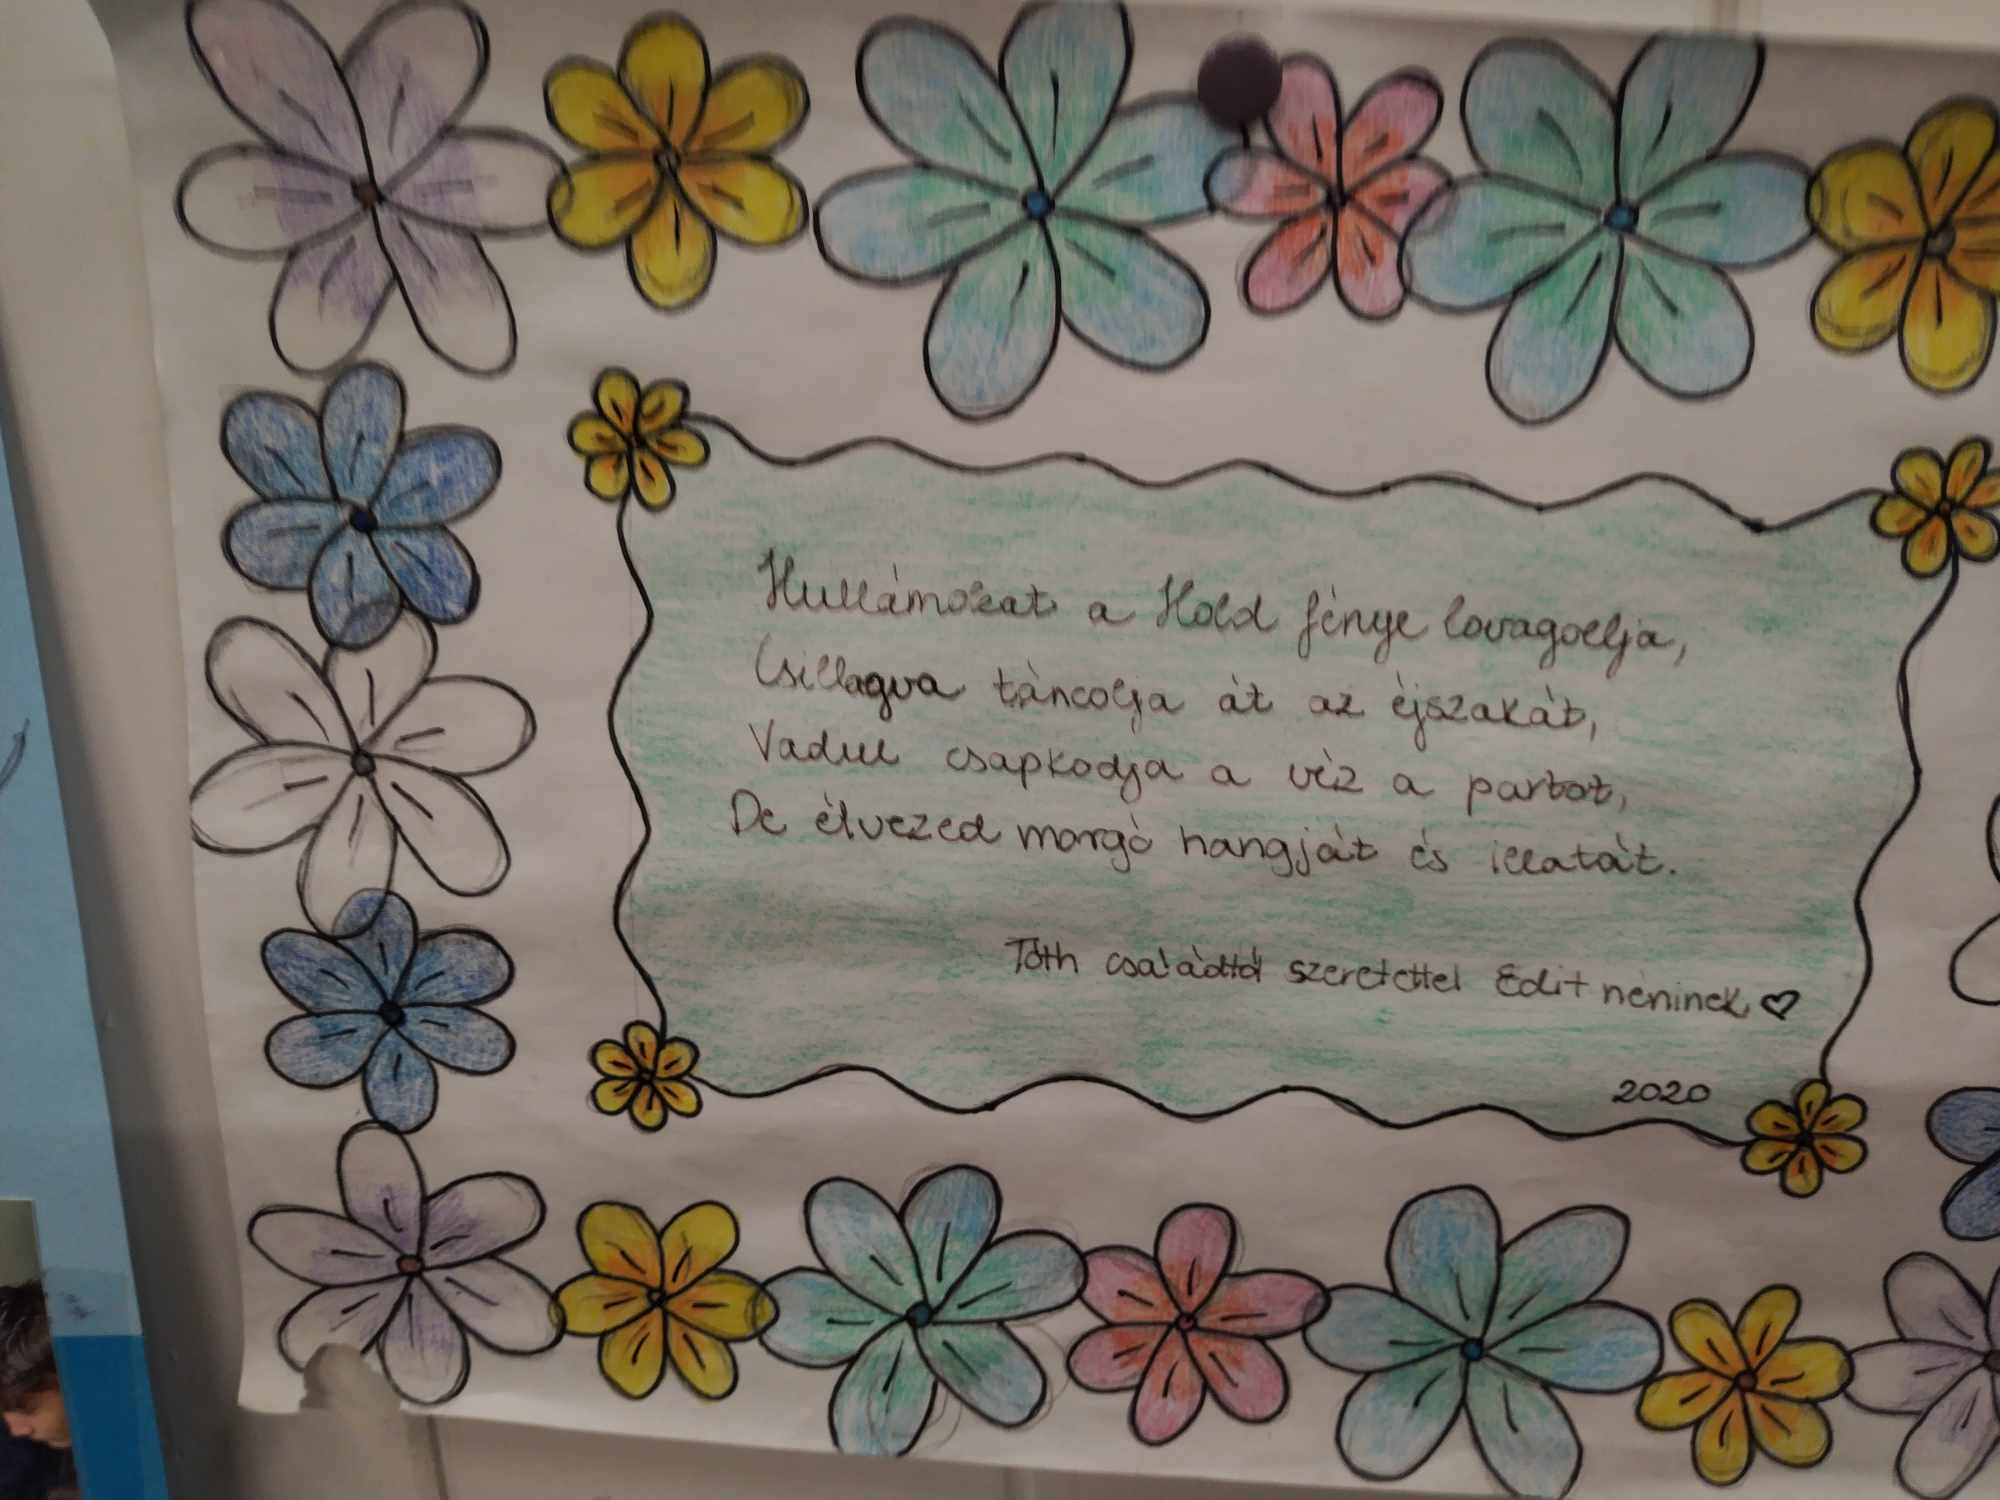 Hullámokat a Hold fénye lovagolja,
Csillagva táncolja át az éjszakát,
Vadul csapkodja a víz a partot,
De élvezed morgó hangját és illatát.
Tóth családtól szeretettel Edit néninek ♡
2020